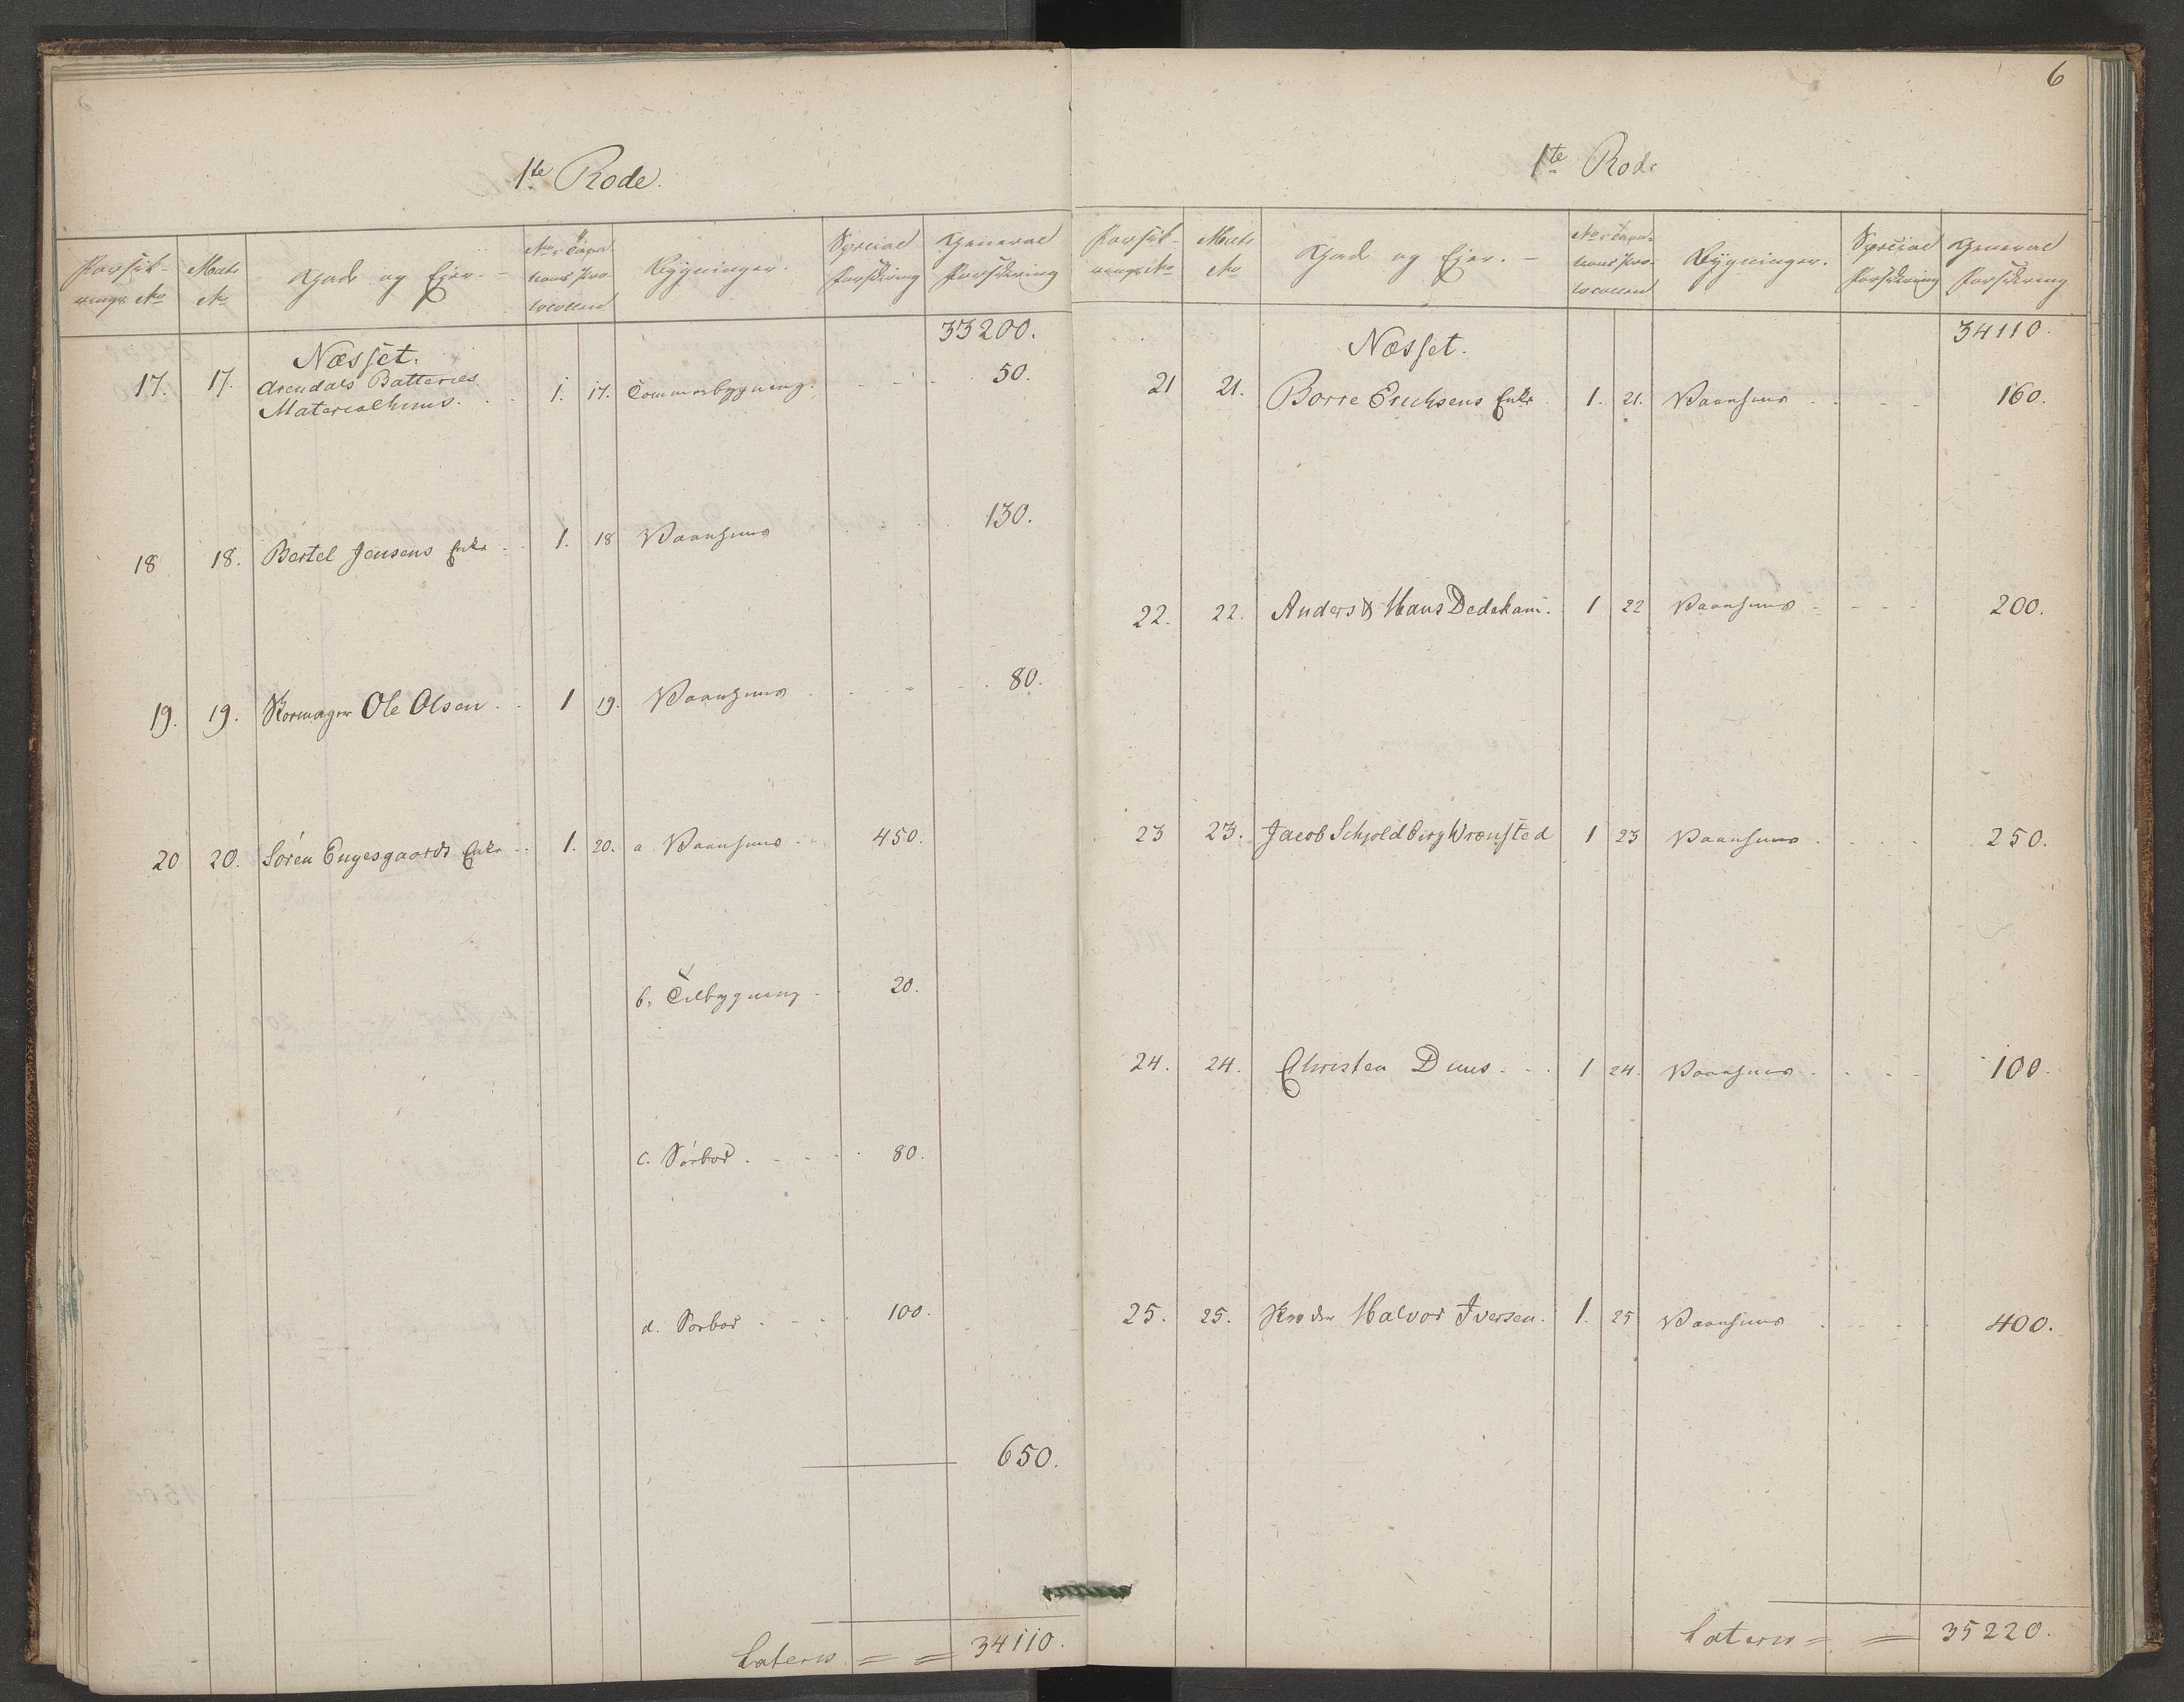 1te Rode.
Forsik-
rings No
Matr
No
Gade og Ejer. -
No i Taxa-
tions Pro-
tocollen
Bygninger.
Special
Forsikring
General
Forsikring
33200.
Næsset.
17. 17. Arendals Batteries 1. 17. Tømmerbygning. 50.
Materialhuus.
18 18. Bertel Jensens Enke 1. 18 Vaanhuus 130.
19. 19. Skomager Ole Olsen 1 19. Vaanhuus 80.
20 20. Sören Engesgaards Enke 1. 20. a Vaanhuus 450.
b. Tilbygning 20.
c. Søebod 80.
d. Søebod 100.
650.
Lateris = = 34110.
6
1te Rode
Forsik-
rings No
Matr
No
Gade og Ejer. -
No i Taxa-
tions Pro-
tocollen
Bygninger.
Special
Forsikring
General
Forsikring
34110.
Næsset.
21 21. Børre Ericksens Enke 1. 21. Vaanhuus 160.
22. 22. Anders & Hans Dedekam. 1 22 Vaanhuus 200.
23 23. Jacob Schjoldborg Wrønsted 1 23 Vaanhuus 250.
24. 24. Christen Duus 1 24. Vaanhuus 100.
25. 25. Halvor Iversen. 1. 25 Vaanhuus 400.
Lateris = = 35220.